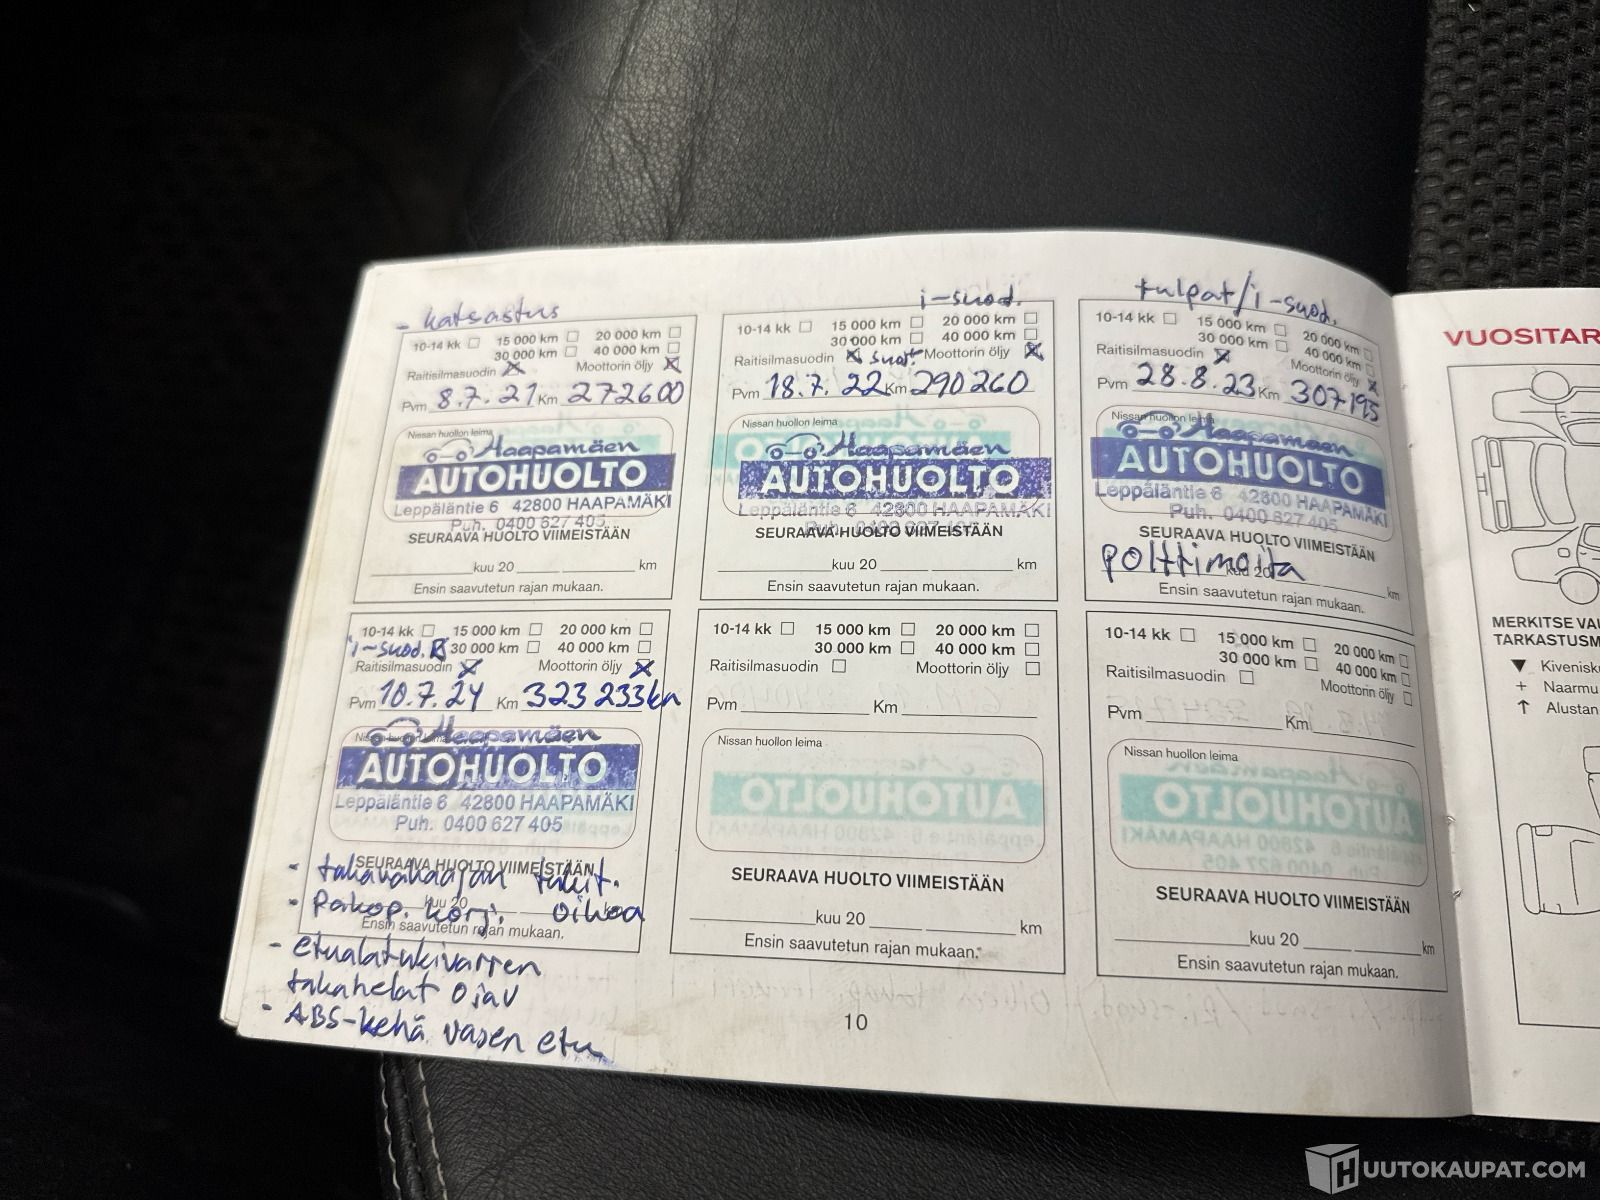 - katsastus
10-14 kk 15 000 km 20 000 km
30 000 km 40 000 km
Raitisilmasuodin Moottorin öljy
Pvm 8.7.21 Km 272600
Nissan huollon leima
Haapamäen
AUTOHUOLTO
Leppäläntie 6 42800 HAAPAMÄKI
Puh. 0400 627 405
SEURAAVA HUOLTO VIIMEISTÄÄN
kuu 20 km
Ensin saavutetun rajan mukaan.
i-suod.
10-14 kk 15 000 km 20 000 km
30 000 km 40 000 km
Raitisilmasuodin Moottorin öljy
Pvm 18.7.22 Km 290260
Nissan huollon leima
Haapamäen
AUTOHUOLTO
Leppäläntie 6 42800 HAAPAMÄKI
Puh. 0400 627 405
SEURAAVA HUOLTO VIIMEISTÄÄN
kuu 20 km
Ensin saavutetun rajan mukaan.
tulpat/i-suod.
10-14 kk 15 000 km 20 000 km
30 000 km 40 000 km
Raitisilmasuodin Moottorin öljy
Pvm 28.8.23 Km 307195
Nissan huollon leima
Haapamäen
AUTOHUOLTO
Leppäläntie 6 42800 HAAPAMÄKI
Puh. 0400 627 405
SEURAAVA HUOLTO VIIMEISTÄÄN
polttimoita
kuu 20 km
Ensin saavutetun rajan mukaan.
10-14 kk 15 000 km 20 000 km
i-suod. 30 000 km 40 000 km
Raitisilmasuodin Moottorin öljy
Pvm 10.7.24 Km 323 233km
Nissan huollon leima
Haapamäen
AUTOHUOLTO
Leppäläntie 6 42800 HAAPAMÄKI
Puh. 0400 627 405
SEURAAVA HUOLTO VIIMEISTÄÄN
- takavakaajan tukit.
kuu 20 km
- Pakop. korj. oikea
Ensin saavutetun rajan mukaan.
- etualatukivarren
takahelat o ja v
- ABS-kehä vasen etu
10-14 kk 15 000 km 20 000 km
30 000 km 40 000 km
Raitisilmasuodin Moottorin öljy
Pvm Km
Nissan huollon leima
SEURAAVA HUOLTO VIIMEISTÄÄN
kuu 20 km
Ensin saavutetun rajan mukaan.
10-14 kk 15 000 km 20 000 km
30 000 km 40 000 km
Raitisilmasuodin Moottorin öljy
Pvm Km
Nissan huollon leima
SEURAAVA HUOLTO VIIMEISTÄÄN
kuu 20 km
Ensin saavutetun rajan mukaan.
10
VUOSITAR
MERKITSE VAU
TARKASTUSM
▼ Kivenisku
+ Naarmu
↑ Alustan
HUUTOKAUPAT.COM